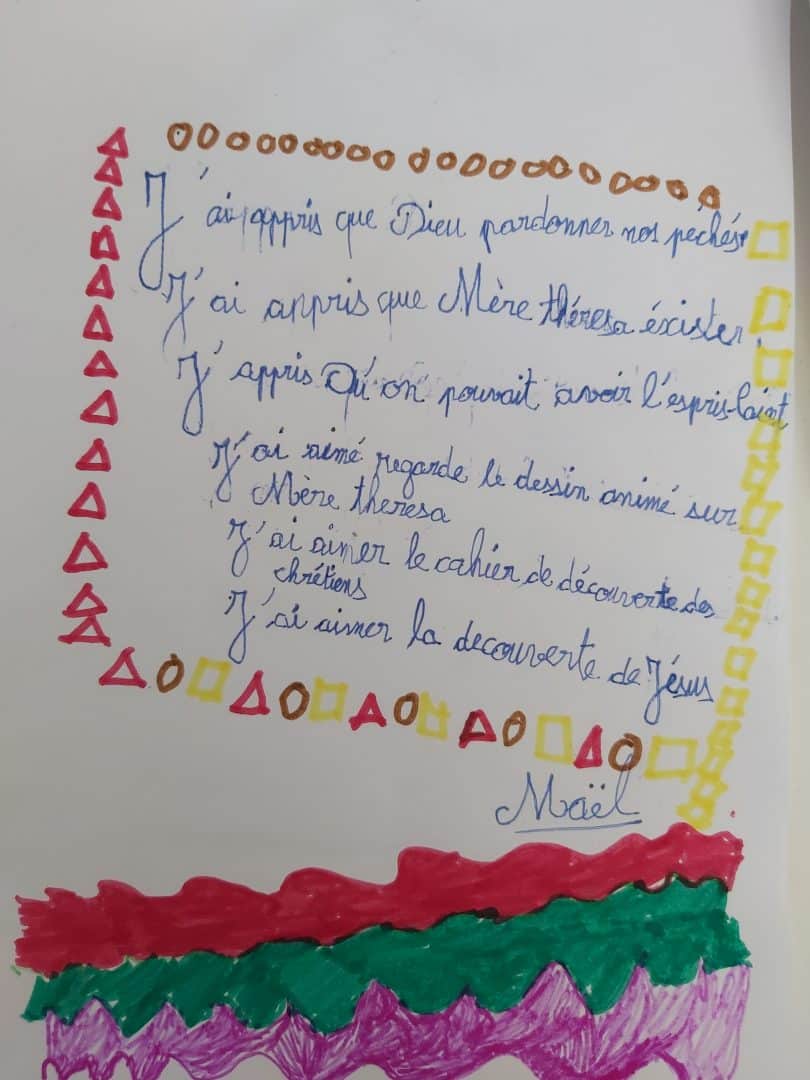 J'ai appris que Dieu pardonner nos péchés
J'ai appris que Mère théresa éxister
J'appris Qu'on pouvait avoir l'espris-saint
J'ai aimé regarde le dessin animé sur
Mère theresa
J'ai aimer le cahier de découverte des
chrétiens
J'ai aimer la decouverte de Jésus
Maël